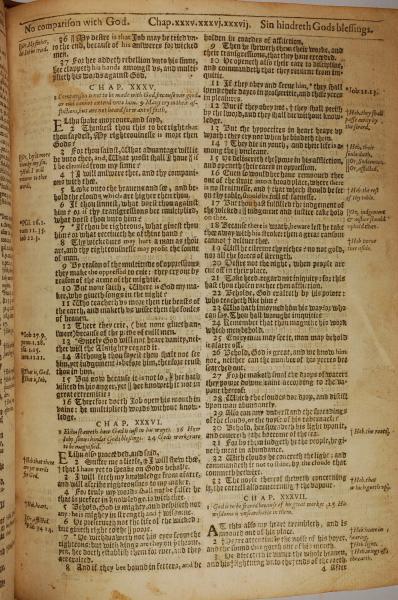 No comparison with God. Chap.xxxv.xxxvj.xxxvij. Sin hindreth Gods blessings.
36 || My desire is that Job may be tried vn-
to the end, because of his answeres for wicked
men.
37 For he addeth rebellion vnto his sinne,
he clappeth his hands amongst vs, and multi-
plieth his words against God.
CHAP. XXXV.
1 Comparison is not to be made with God, because our good
or euil cannot extend vnto him. 9 Many cry in their af-
flictions, but are not heard for want of faith.
Elihu spake moreouer, and sayd,
2 Thinkest thou this to be right, that
thou saydest, My righteousnesse is more then
Gods?
3 For thou saidst, What aduantage will
it be vnto thee, and, What profit shall I haue,
if I
be cleansed from my sinne?
4 I will answere thee, and thy compani-
ons with thee.
5 Looke vnto the heauens and see, and be-
hold the clouds which are higher then thou.
6 If thou sinnest, what doest thou against
him? or if thy transgressions be multiplied,
what doest thou vnto him?
7 If thou be righteous, what giuest thou
him? or what receiueth he of thine hand?
8 Thy wickednesse may hurt a man as thou
art, and thy righteousnesse may profit the sonne
of man.
9 By reason of the multitude of oppressions
they make the oppressed to crie: they cry out by
reason of the arme of the mightie.
10 But none saith, Where is God my ma-
ker, who giueth songs in the night?
11 Who teacheth vs more then the beasts of
the earth, and maketh vs wiser then the foules
of heauen.
12 There they crie, (but none giueth an-
swere) because of the pride of euill men.
13 Surely God will not heare vanity, nei-
ther will the Almighty regard it.
14 Although thou sayest thou shalt not see
him, yet iudgement is before him, therefore trust
thou in him.
15 But now because it is not so, || he hath
visited in his anger, yet || he knoweth it not in
great extremitie:
16 Therefore doeth Job open his mouth in
vaine: he multiplieth words without know-
ledge.
CHAP. XXXVI.
Elihu also proceeded, and said,
2 Suffer me a little, and I will shew thee,
that I haue yet to speake on Gods behalfe.
3 I will fetch my knowledge from afarre,
and will ascribe righteousnes to my maker.
4 For truely my words shall not be false: he
that is perfect in knowledge is with thee.
5 Behold, God is mighty, and despiseth not
any: he is mighty in strength and wisedome.
6 He preserueth not the life of the wicked:
but giueth right to the poore.
7 He withdraweth not his eyes from the
righteous: but with kings are they on the throne,
yea, he doeth establish them for euer, and they
are exalted.
8 And if they bee bound in fetters, and be
holden in cords of affliction,
9 Then he sheweth them their worke, and
their transgressions, that they haue exceeded.
10 He openeth also their eare to discipline,
and commandeth that they returne from ini-
quitie.
11 If they obey and serue him, they shall
spend their dayes in prosperity, and their yeeres
in pleasures.
12 But if they obey not, they shall perish
by the sword, and they shall die without know-
ledge.
13 But the hypocrites in heart heape vp
wrath: they cry not when he bindeth them.
14 They die in youth, and their life is a-
mong the || vncleane.
15 He deliuereth the || poore in his affliction,
and openeth their eares in oppression.
16 Euen so would he haue remooued thee
out of the strait into a broad place, where there
is no straitnesse, and that which should be set
on thy table, should be full of fatnesse.
17 But thou hast fulfilled the iudgement of
the wicked: || iudgement and iustice take hold
on thee.
18 Because there is wrath, beware lest he take
thee away with his stroke: then a great ransom
cannot deliuer thee.
19 Will he esteeme thy riches? no not gold,
nor all the forces of strength.
20 Desire not the night, when people are
cut off in their place.
21 Take heed, regard not iniquity: for this
hast thou chosen rather then affliction.
22 Behold, God exalteth by his power:
who teacheth like him?
23 Who hath inioyned him his way? or who
can say, Thou hast wrought iniquitie?
24 Remember that thou magnifie his work
which men behold.
25 Euery man may see it, man may behold
it afarre off.
26 Behold, God is great, and we know him
not, neither can the number of his yeeres be
searched out.
27 For he maketh small the drops of water:
they powre downe raine according to the va-
pour thereof:
28 Which the clouds doe drop, and distill
vpon man abundantly.
29 Also can any vnderstand the spreadings
of the clouds, or the noise of his tabernacle?
30 Behold, he spreadeth his light vpon it,
and couereth the bottome of the sea.
31 For by them iudgeth he the people, he gi-
ueth meat in abundance.
32 With clouds he couereth the light; and
commandeth it not to shine, by the cloud that
commeth betwixt.
33 The noise thereof sheweth concerning
it, the cattell also concerning the vapour.
CHAP. XXXVII.
1 God is to be feared because of his great workes. 15 His
wisedome is vnsearchable in them.
At this also my heart trembleth, and is
mooued out of his place.
2 Heare attentiuely the noise of his voyce,
and the sound that goeth out of his mouth.
3 He directeth it vnder the whole heauen,
and his lightning vnto the ends of the earth.
4 After